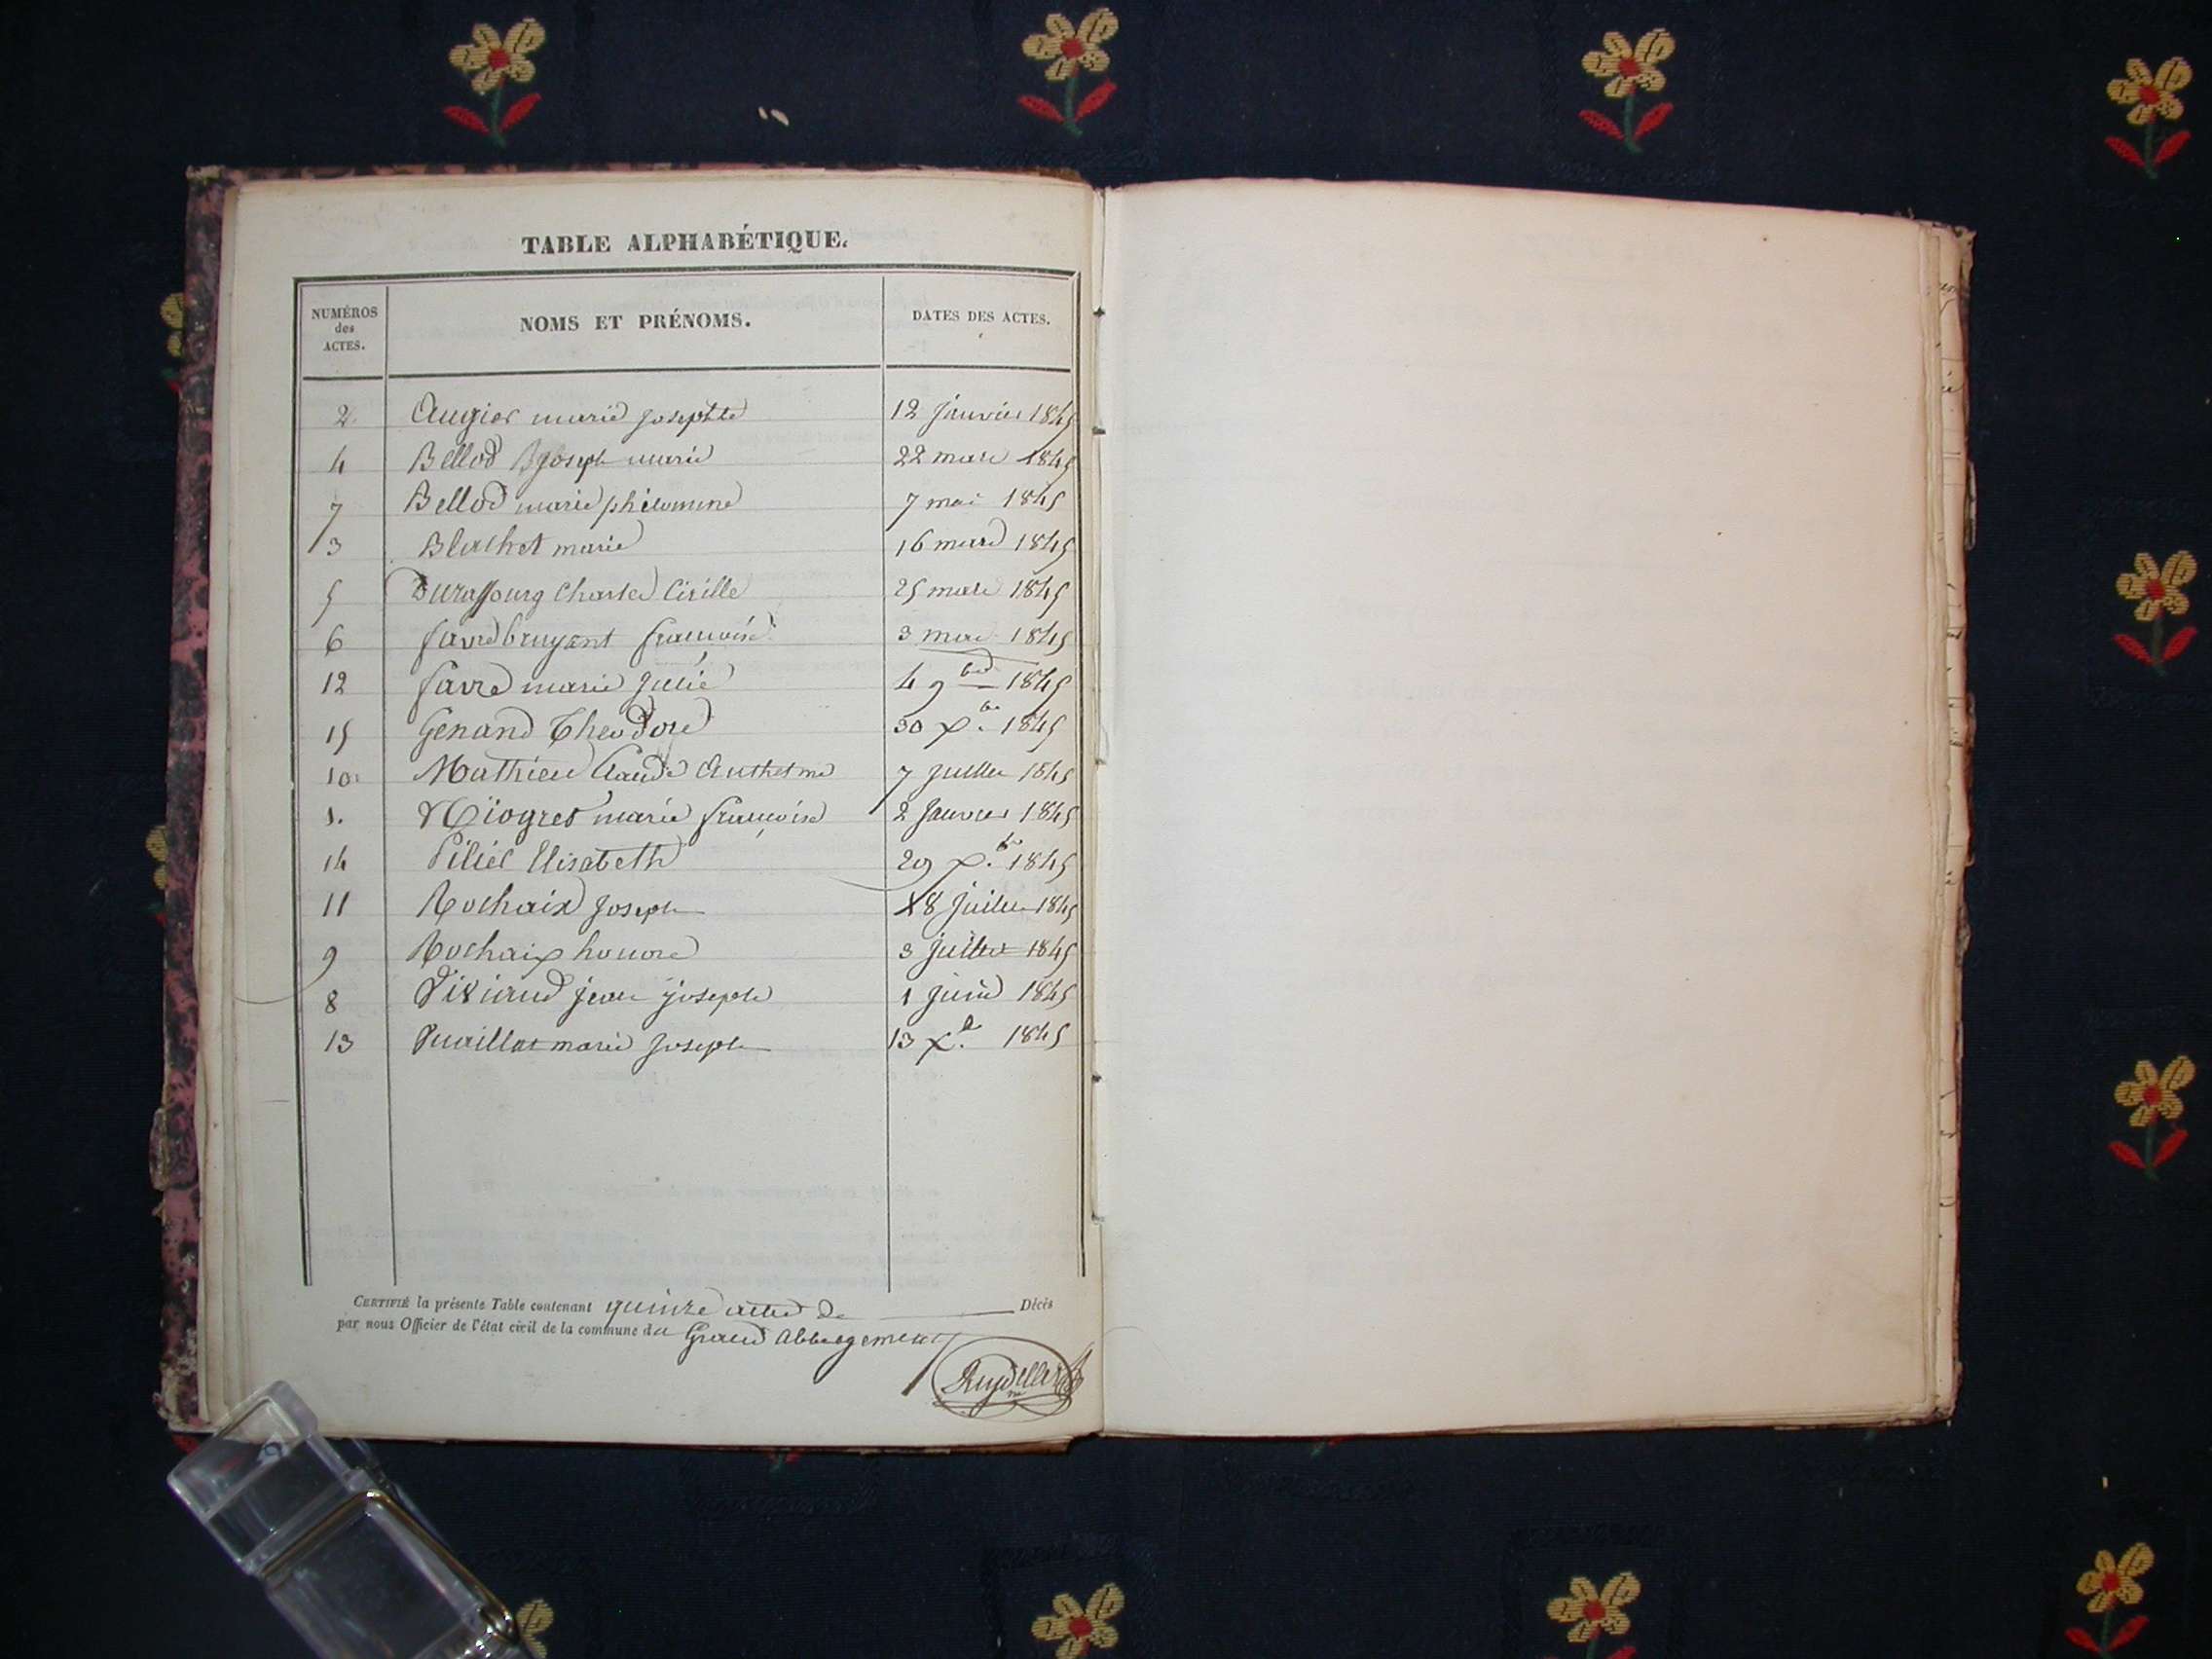 TABLE ALPHABÉTIQUE.
NUMÉROS des ACTES. NOMS ET PRÉNOMS. DATES DES ACTES.
2 Augier marie josephte 12 janvier 1845
4 Bellod joseph marie 22 mars 1845
7 Bellod marie philomine 7 mai 1845
3 Blachet marie 16 mars 1845
5 Durafourg Charles Cirille 25 mars 1845
6 favre bruyant françoise 3 mai 1845
12 favre marie julie 4 9bre 1845
15 Genand Theodore 30 Xbre 1845
10 Mathieu Claude Anthelme 7 juillet 1845
1. Miogret marie françoise 2 Janvier 1845
14 Pillier Elisabeth 29 Xbre 1845
11 Rochaix Joseph 18 juillet 1845
9 Rochaix honore 3 juillet 1845
8 jean joseph 1 juin 1845
13 marie Joseph 13 Xbre 1845
CERTIFIÉ la présente Table contenant quinze actes de Décès
par nous Officier de l'état civil de la commune du Grand Abbergement